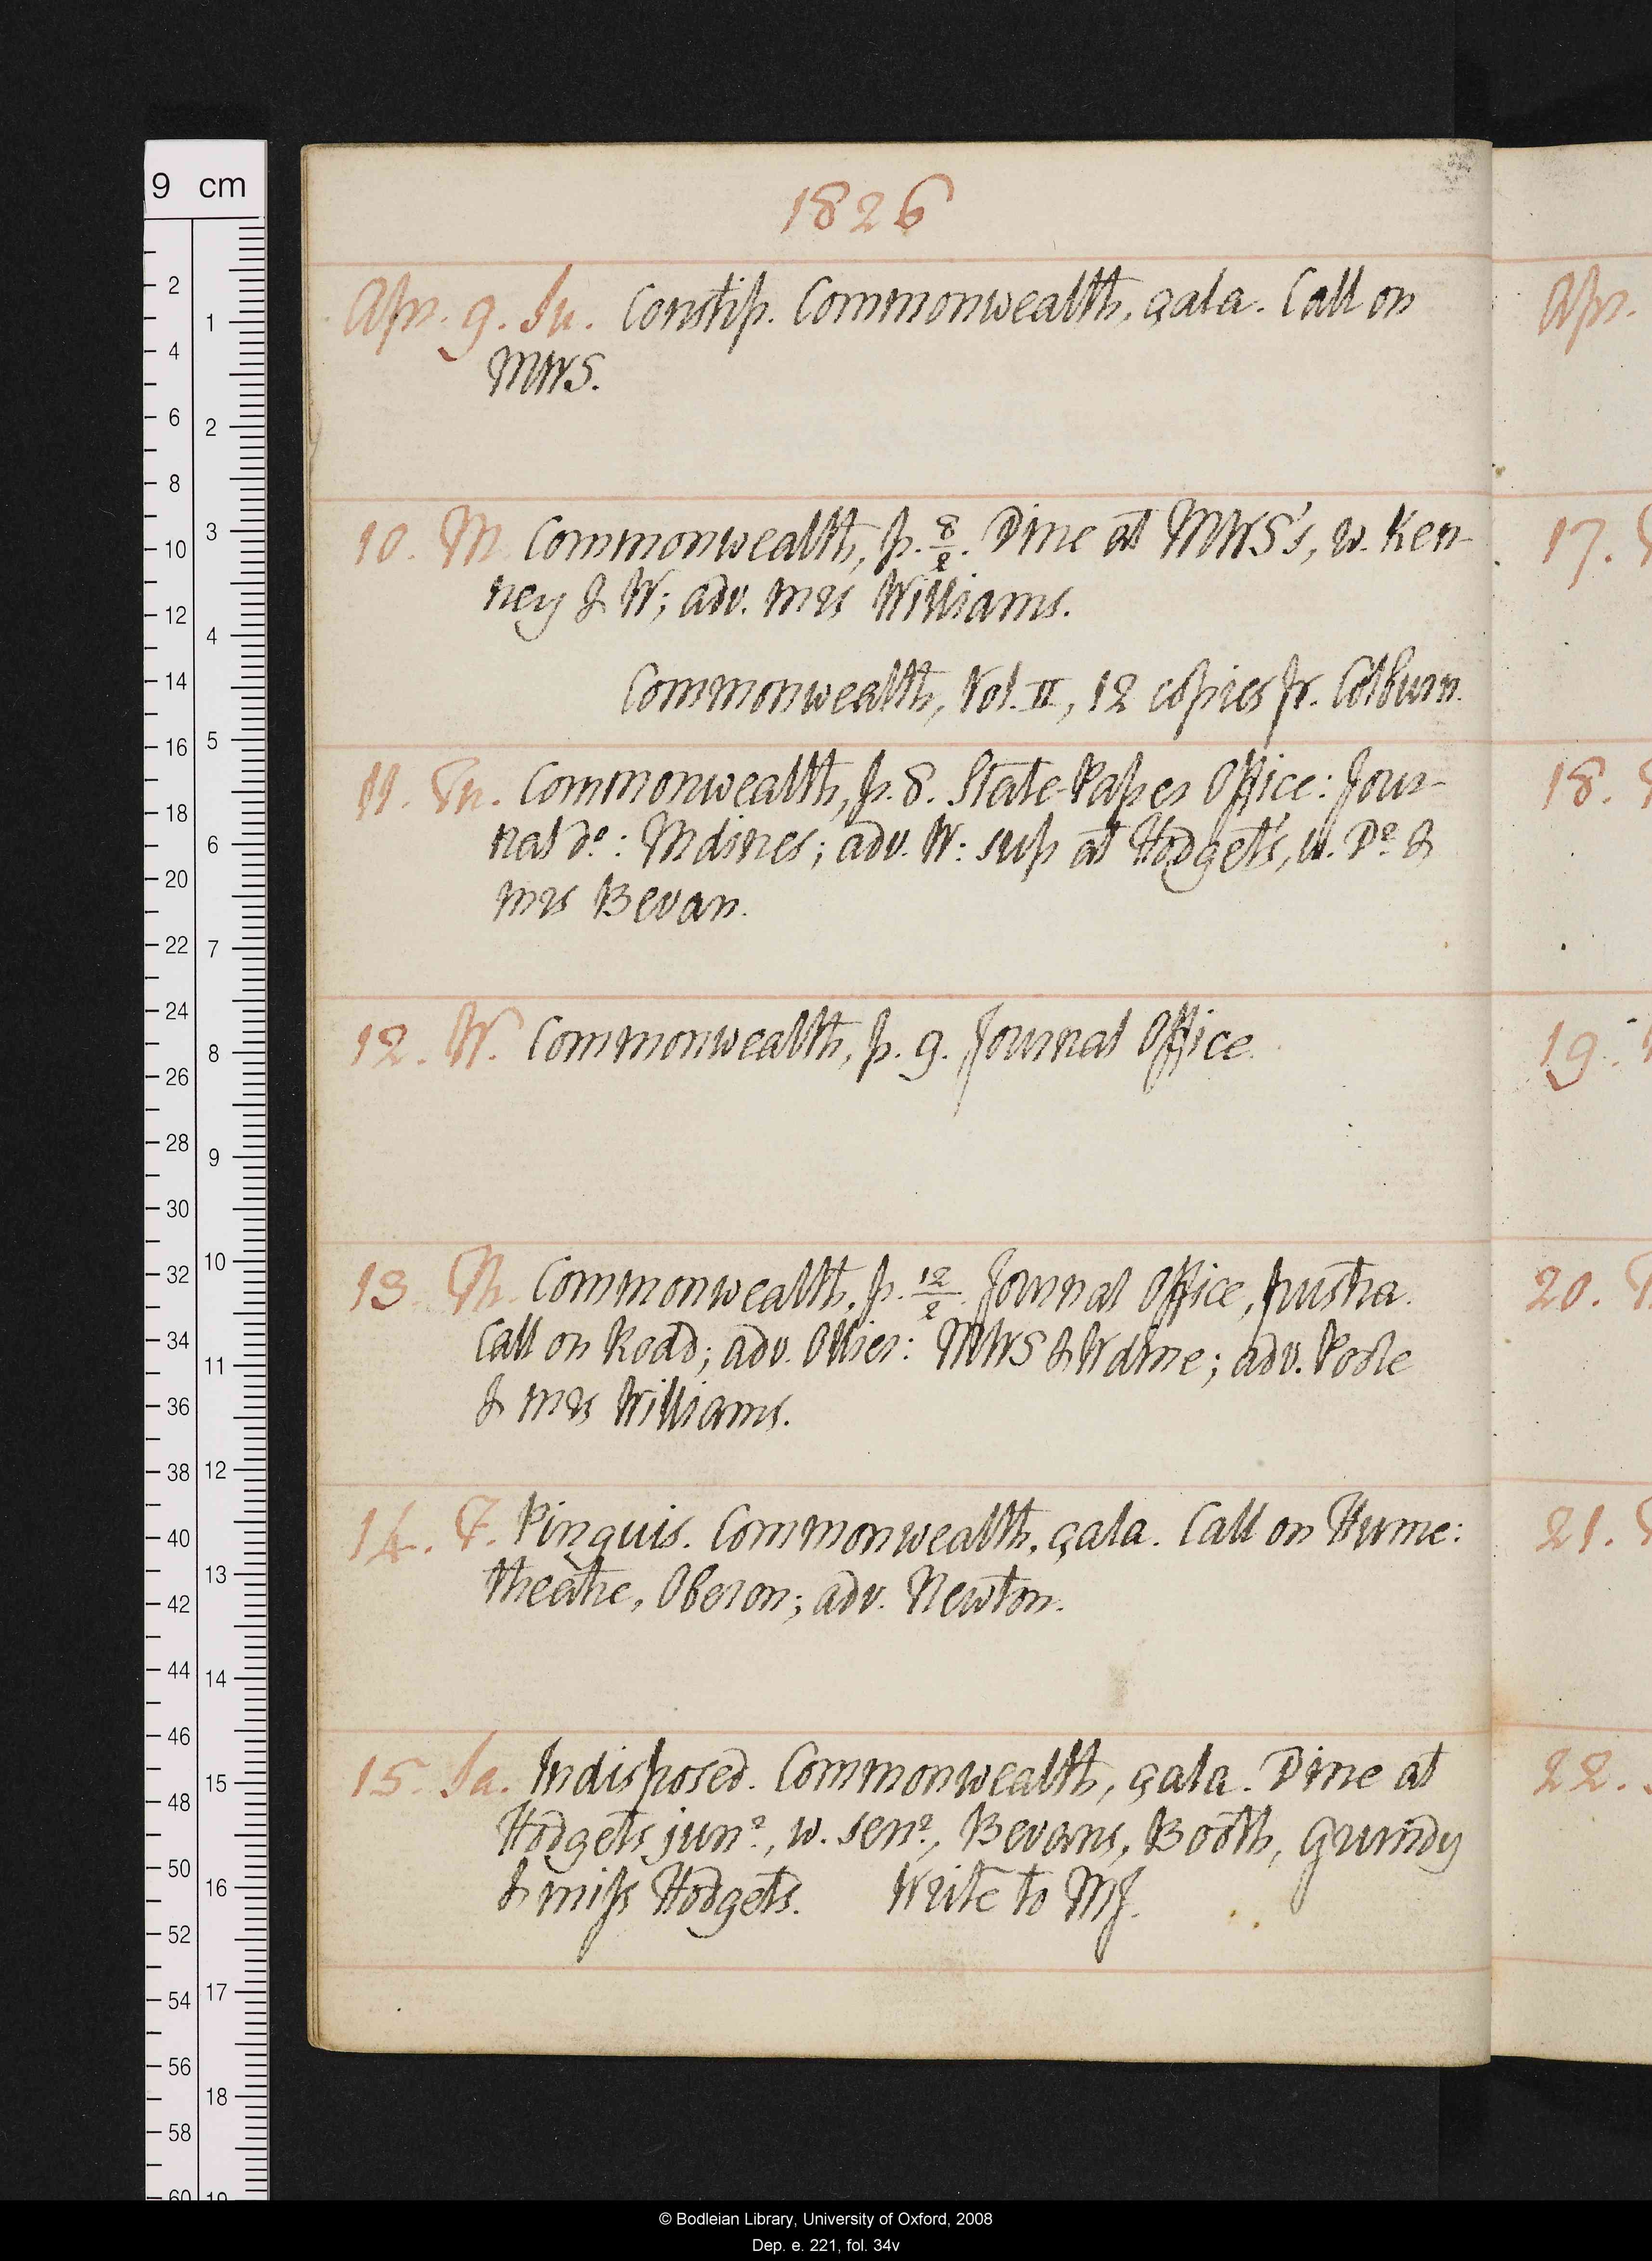 1826
Apr. 9. Su. Constip. Commonwealth, çala. Call on
MWS.
10. M. Commonwealth, p. 8/2. Dine at MWS's, w. Ken-
ney & W; adv. mrs Williams.
Commonwealth, Vol. II, 12 copies fr. Colburn.
11. Tu. Commonwealth, p. 8. State-Paper Office: Jour-
nal do: M dines; adv. W: sup at Hodgets, w. Dr &
mrs Bevan.
12. W. Commonwealth, p. 9. Journal Office.
13. Th. Commonwealth, p. 12/2. Journal Office, frustra.
Call on Rodd; adv. Ollier: MWS & W dine; adv. Poole
& mrs Williams.
14. F. Pinguis. Commonwealth, çala. Call on Hume:
theatre, Oberon; adv. Newton.
15. Sa. Indisposed. Commonwealth, çala. Dine at
Hodgets junr, w. senr, Bevans, Booth, Grundy
& miss Hodgets. Write to MJ.
Apr.
17.
18.
19.
20.
21.
22.
9 cm
2
4
6
8
10
12
14
16
18
20
22
24
26
28
30
32
34
36
38
40
42
44
46
48
50
52
54
56
58
60
1
2
3
4
5
6
7
8
9
10
11
12
13
14
15
16
17
18
19
© Bodleian Library, University of Oxford, 2008
Dep. e. 221, fol. 34v